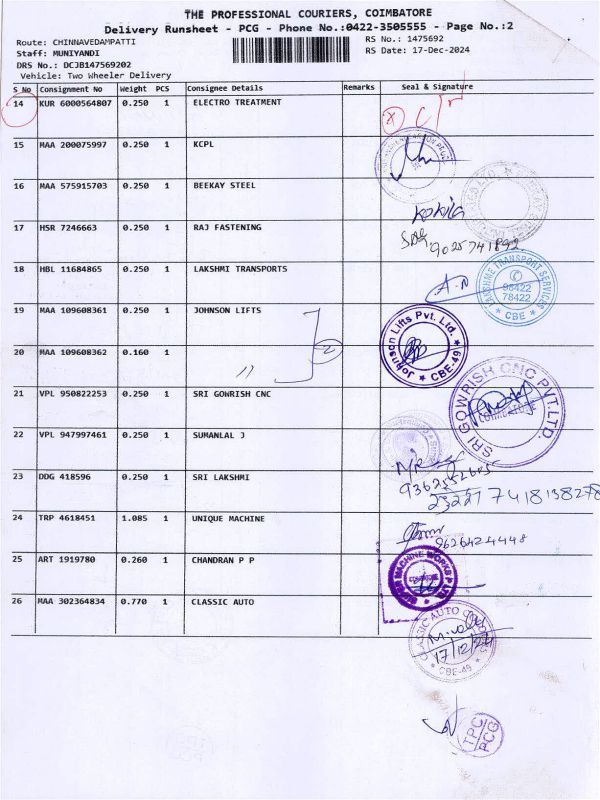 THE PROFESSIONAL COURIERS, COIMBATORE
Delivery Runsheet - PCG - Phone No.:0422-3505555 - Page No.:2
Route: CHINNAVEDAMPATTI RS No.: 1475692
Staff: MUNIYANDI RS Date: 17-Dec-2024
DRS No.: DCJB147569202
Vehicle: Two Wheeler Delivery
S No Consignment No Weight PCS Consignee Details Remarks Seal & Signature
14 KUR 6000564807 0.250 1 ELECTRO TREATMENT
15 MAA 200075997 0.250 1 KCPL
16 MAA 575915703 0.250 1 BEEKAY STEEL
Kokila
17 HSR 7246663 0.250 1 RAJ FASTENING
9025741892
18 HBL 11684865 0.250 1 LAKSHMI TRANSPORTS
A.N
LAKSHME TRANSPORT SERVICES
98422
78422
CBE
19 MAA 109608361 0.250 1 JOHNSON LIFTS
Johnson Lifts Pvt. Ltd.
CBE-49
20 MAA 109608362 0.160 1 " 2
21 VPL 950822253 0.250 1 SRI GOWRISH CNC
SRI GOWRISH CNC PVT.LTD.
22 VPL 947997461 0.250 1 SUMANLAL J
23 DDG 418596 0.250 1 SRI LAKSHMI
9362552605
7418138278
24 TRP 4618451 1.085 1 UNIQUE MACHINE
9626424448
25 ART 1919780 0.260 1 CHANDRAN P P
MACHINE WORKS P LTD
26 MAA 302364834 0.770 1 CLASSIC AUTO
CLASSIC AUTO
17/12/24
CBE-49
TPC
PCG